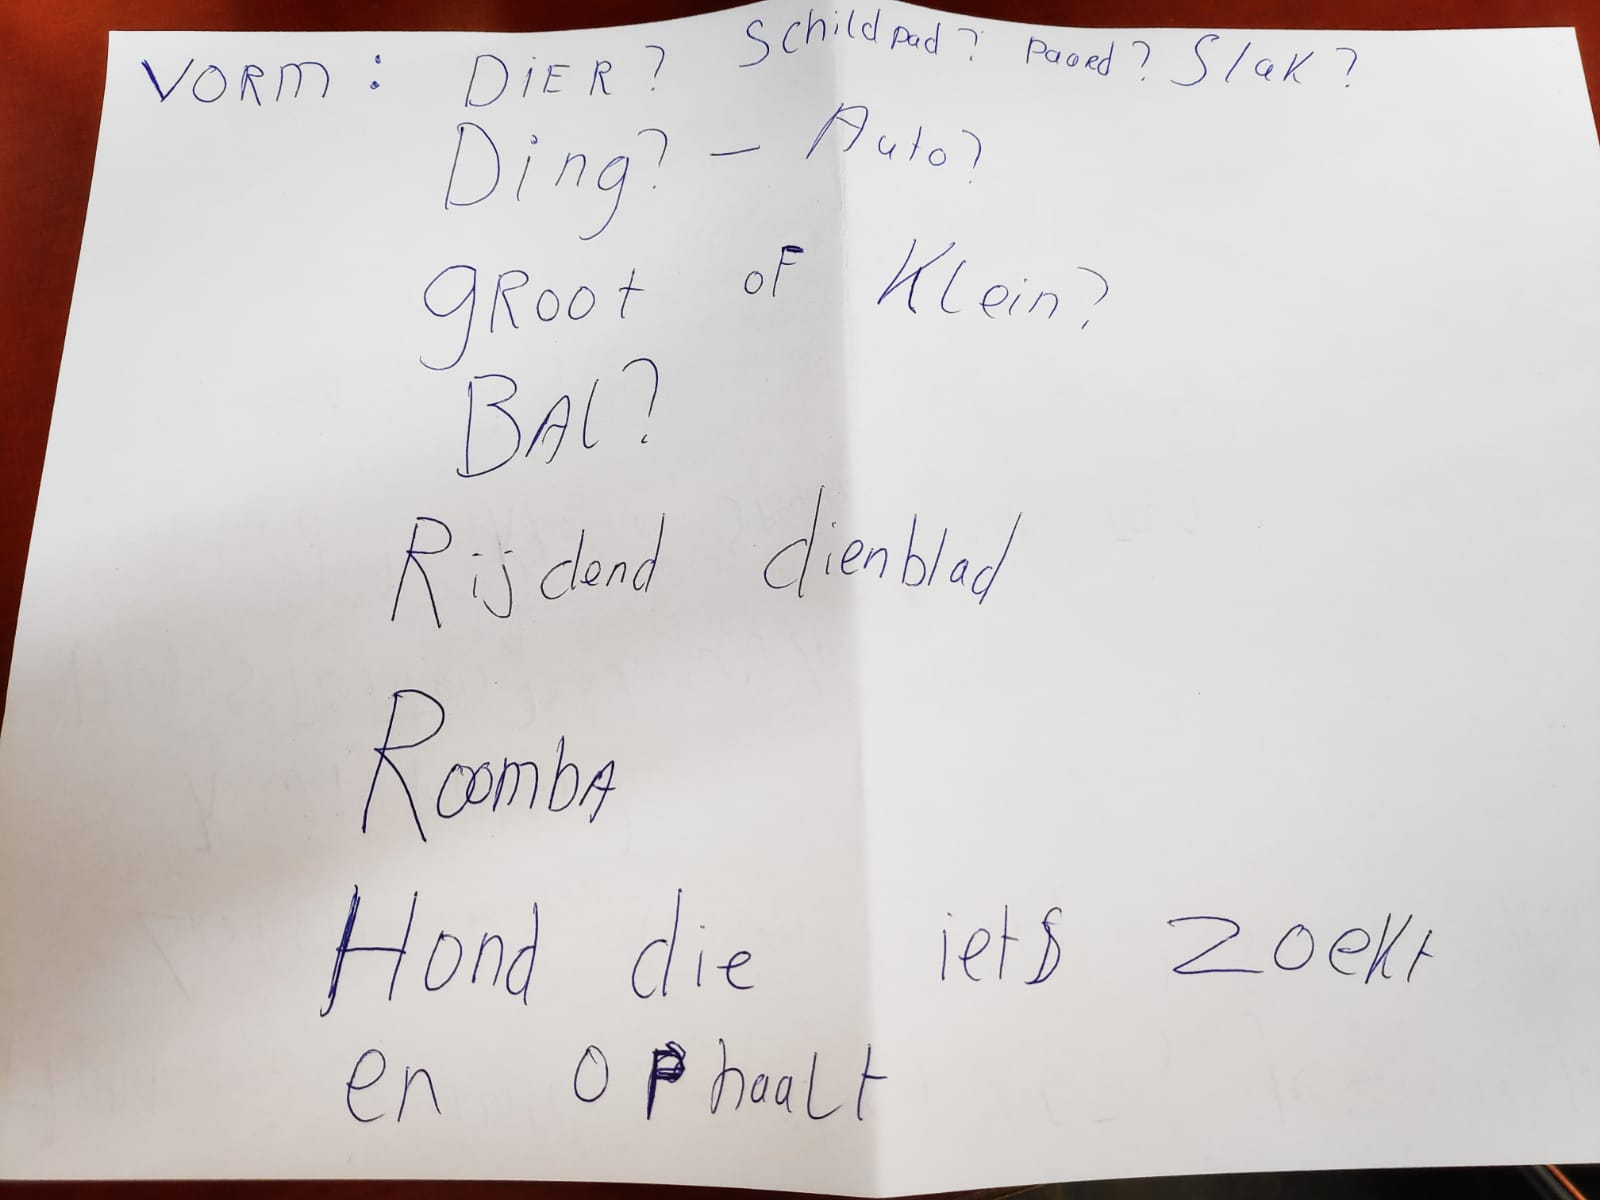 VORM: DIER? Schildpad? paard? Slak?
Ding? - Auto?
gRoot oF Klein?
BAL?
Rijdend dienblad
RoombA
Hond die iets zoekt
en ophaalt